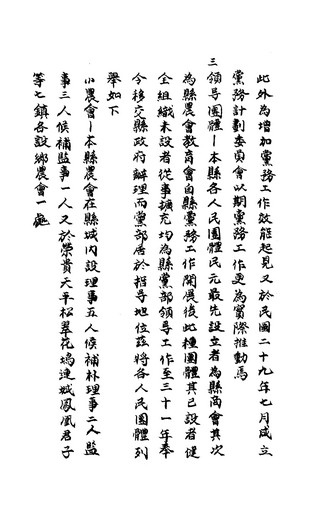 此外為增加黨務工作效能起見又於民國二十九年七月成立
黨務計劃委員會以期黨務工作更為實際推動焉
三領导團體—本縣各人民團體民元最先設立者為縣商會其次
為縣農會教育會自縣黨務工作開展後此種團體其已設者健
全組織未設者從事擴充均為縣黨部領导工作至三十一年奉
令移交縣政府辦理而黨部居於指导地位茲將各人民團體列
舉如下
小農會—本縣農會在縣城內設理事五人候補朴理事二人監
事三人候補監事一人又於榮貴天平松翠花塢連城鳳凰君子
等七鎮各設鄉農會一處